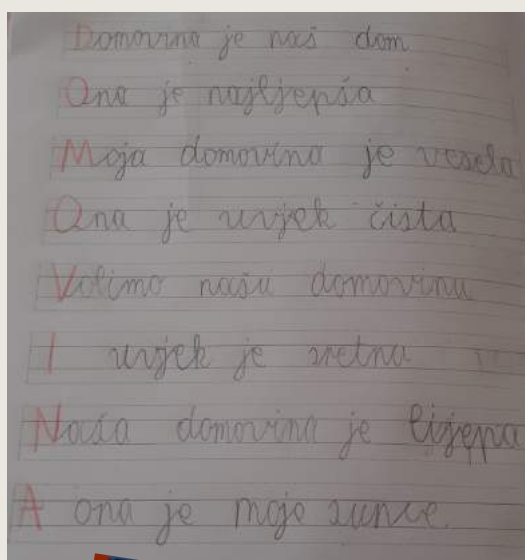 Domovina je naš dom
Ona je najljepša
Moja domovina je vesela
Ona je uvjek čista
Volimo našu domovinu
I uvjek je sretna
Naša domovina je lijepa
A ona je moje sunce.